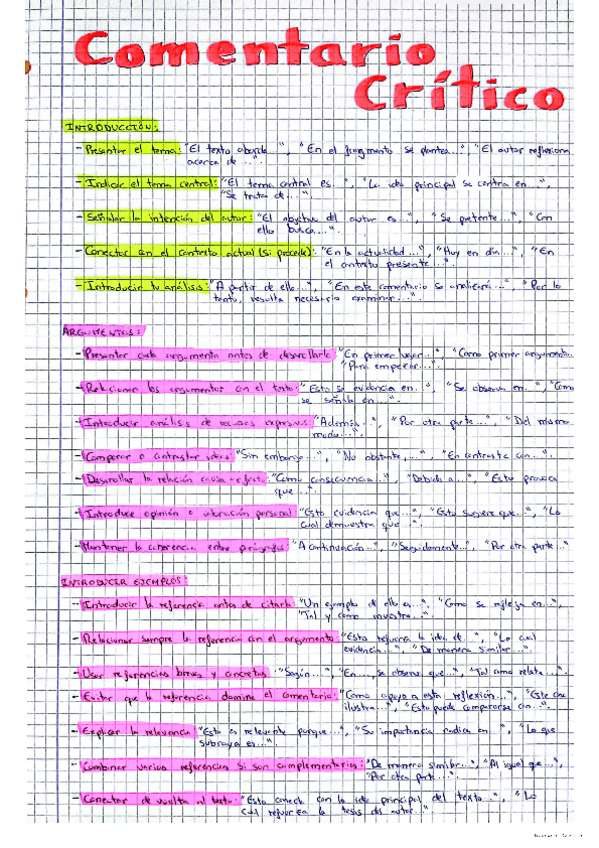 Comentario
Crítico
INTRODUCCIÓN:
- Presentar el tema: "El texto aborda...", "En el fragmento se plantea...", "El autor reflexiona
acerca de ...".
- Indicar el tema central: "El tema central es...", "La idea principal se centra en...",
"Se trata de...".
- Señalar la intención del autor: "El objetivo del autor es...", "Se pretende...", "Con
ello busca...".
- Conectar con el contexto actual (si procede): "En la actualidad...", "Hoy en día...", "En
el contexto presente...".
- Introducir tu análisis: "A partir de ello...", "En este comentario se analizará...", "Por lo
tanto, resulta necesario examinar...".
ARGUMENTOS:
- Presentar cada argumento antes de desarrollarlo: "En primer lugar...", "Como primer argumento...
"Para empezar...".
- Relacionar los argumentos con el texto: "Esto se evidencia en...", "Se observa en...", "Como
se señala en...".
- Introducir análisis de recursos expresivos: "Además...", "Por otra parte...", "Del mismo
modo...".
- Comparar o contrastar ideas: "Sin embargo...", "No obstante,...", "En contraste con...".
- Desarrollar la relación causa-efecto: "Como consecuencia...", "Debido a...", "Esto provoca
que ...".
- Introduce opinión o valoración personal: "Esto evidencia que...", "Esto sugiere que...", "Lo
cual demuestra que...".
- Mantener la coherencia entre párrafos: "A continuación...", "Seguidamente...", "Por otra parte..."
INTRODUCIR EJEMPLOS:
- Introducir la referencia antes de citarla: "Un ejemplo de ello es...", "Como se refleja en...",
"Tal y como muestra...".
- Relacionar siempre la referencia con el argumento: "Esto refuerza la idea de...", "Lo cual
evidencia...", "De manera similar...".
- Usar referencias breves y concretas: "Según...", "En..., se observa que...", "Tal como relata...".
- Evitar que la referencia domine el comentario: "Como apoyo a esta reflexión...", "Este caso
ilustra...", "Esto puede compararse con...".
- Explicar la relevancia: "Esto es relevante porque...", "Su importancia radica en...", "Lo que
subraya es...".
- Combinar varias referencias si son complementarias: "De manera similar...", "Al igual que...",
"Por otra parte...".
- Conectar de vuelta al texto: "Esto conecta con la idea principal del texto...", "Lo
cual refuerza la tesis del autor...".